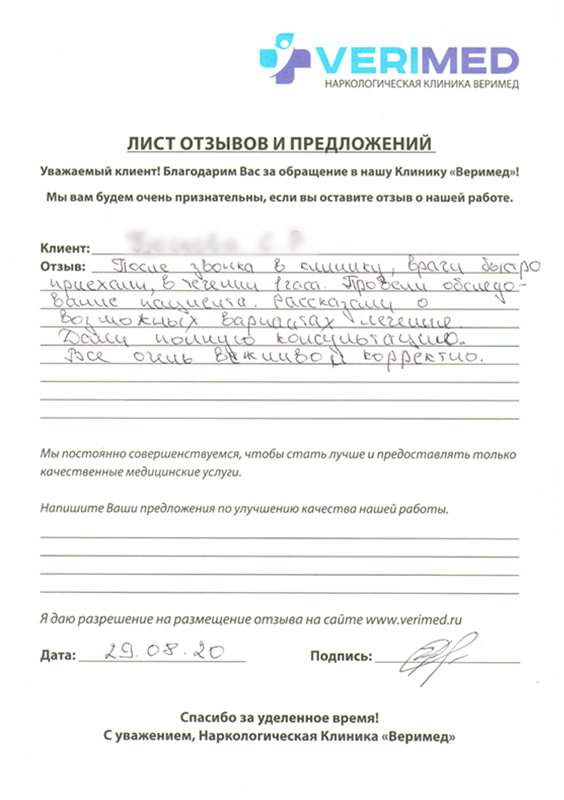 VERIMED
НАРКОЛОГИЧЕСКАЯ КЛИНИКА ВЕРИМЕД
ЛИСТ ОТЗЫВОВ И ПРЕДЛОЖЕНИЙ
Уважаемый клиент! Благодарим Вас за обращение в нашу Клинику «Веримед»!
Мы вам будем очень признательны, если вы оставите отзыв о нашей работе.
Клиент:
Отзыв: После звонка в клинику, врачи быстро
приехали, в течении 1 часа. Провели обследо-
вание пациента. Рассказали о
возможных вариантах лечения.
Дали полную консультацию.
Все очень вежливо и корректно.
Мы постоянно совершенствуемся, чтобы стать лучше и предоставлять только
качественные медицинские услуги.
Напишите Ваши предложения по улучшению качества нашей работы.
Я даю разрешение на размещение отзыва на сайте www.verimed.ru
Дата: 29.08.20 Подпись:
Спасибо за уделенное время!
С уважением, Наркологическая Клиника «Веримед»